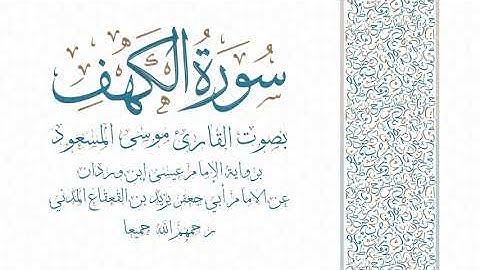 سُورَةُ الكَهْفِ
بصوت القارئ موسى المسعود
برواية الإمام عيسى ابن وردان
عن الامام أبي جعفر يزيد بن القعقاع المدني
رحمهم الله جميعا